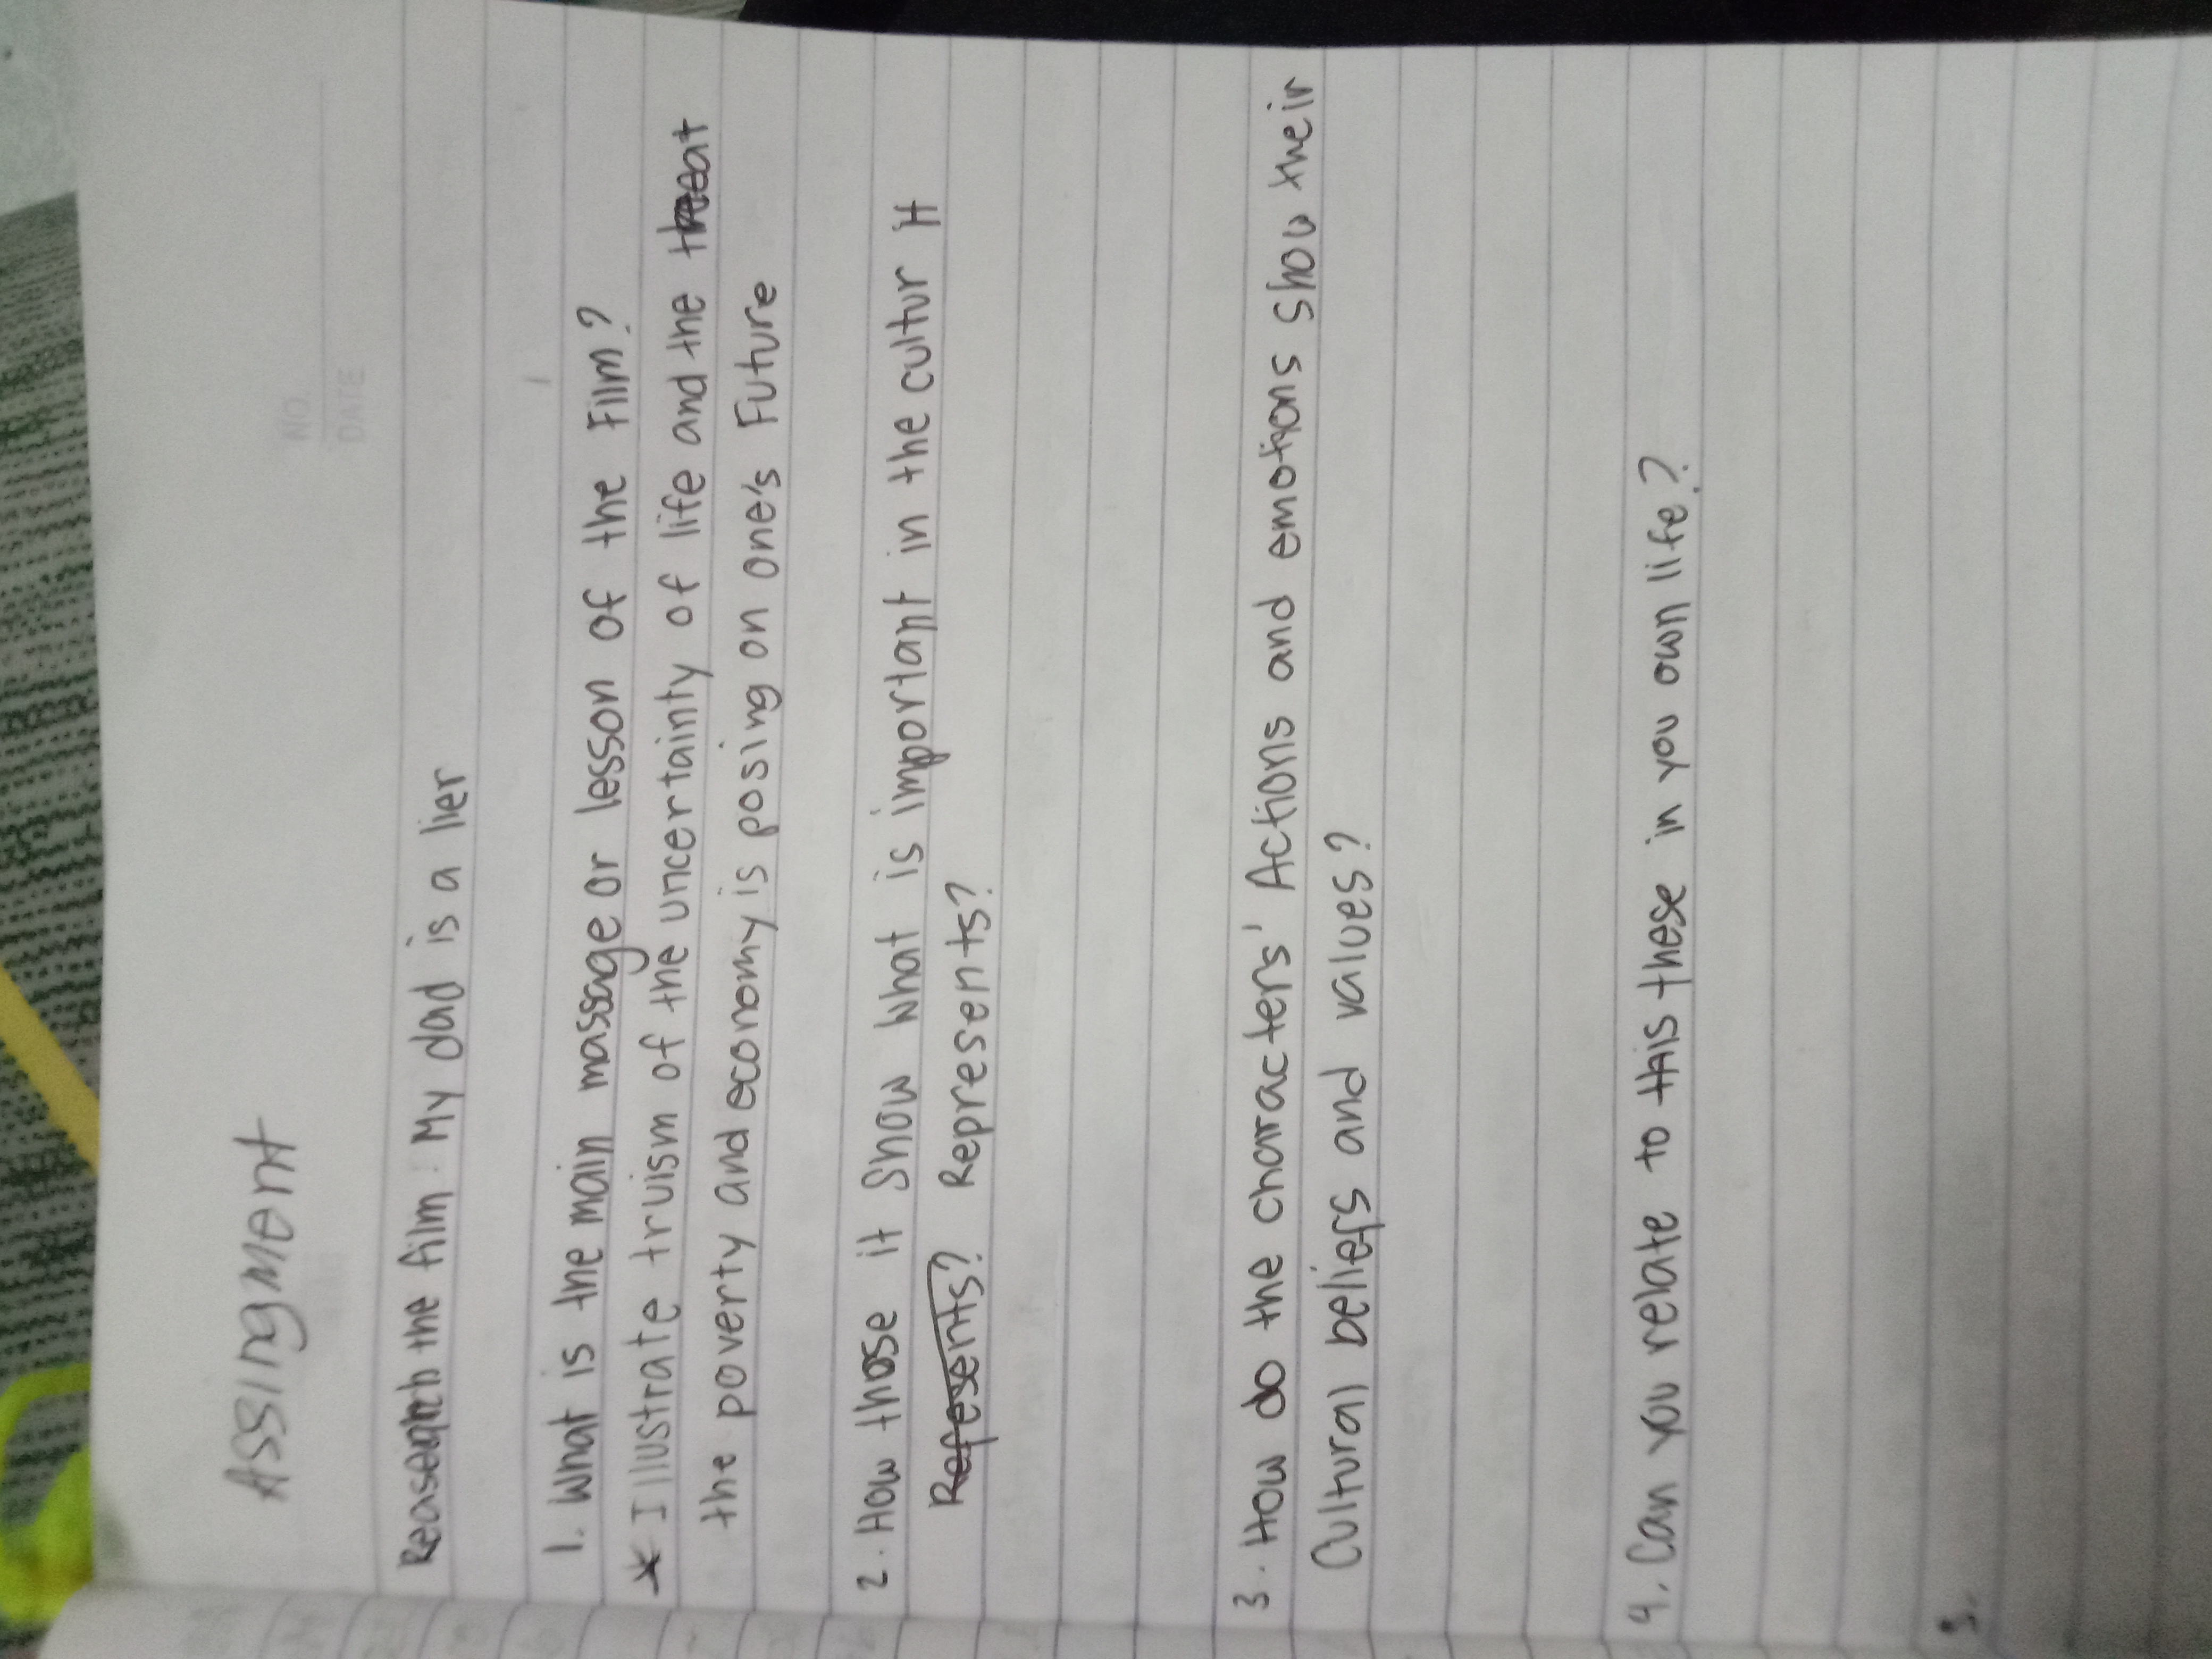 Assingment
NO.
DATE
Reasearch the film: My dad is a lier
1. What is the main massage or lesson of the Film?
* Illustrate truism of the uncertainty of life and the threat
the poverty and economy is posing on one's Future
2. How those it Show What is important in the cultur It
Represents? Represents?
3. How do the characters' Actions and emotions show their
Cultural beliefs and values?
4. Can you relate to this these in you own life?